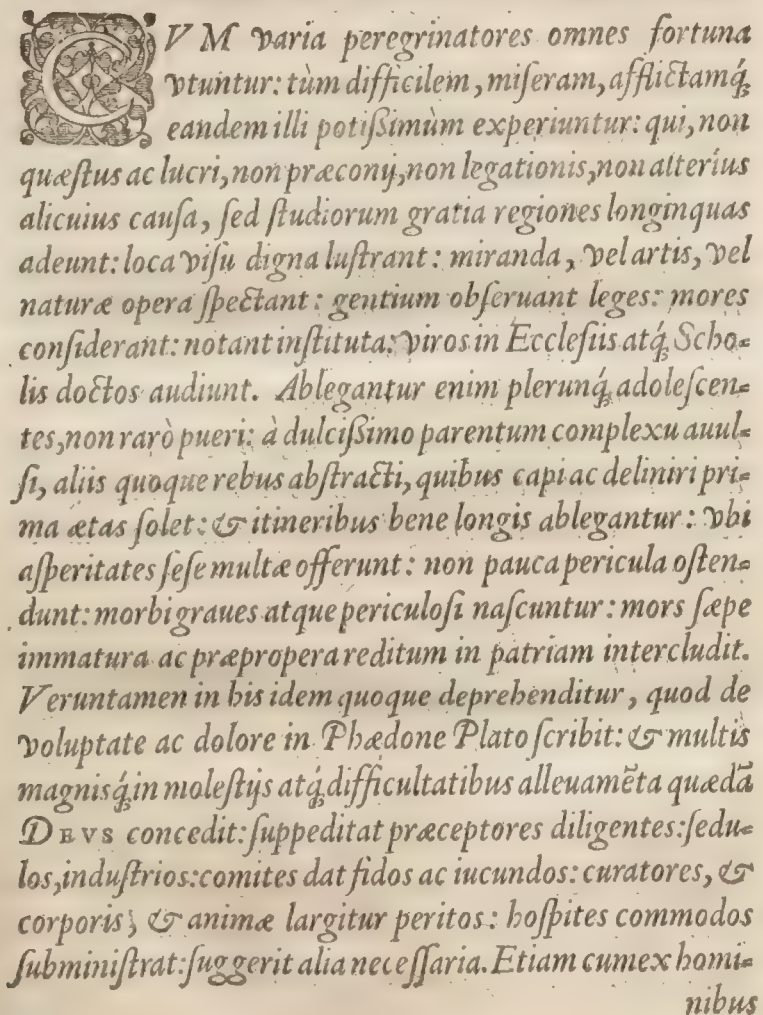 CVM varia peregrinatores omnes fortuna
vtuntur: tùm difficilem, miſeram, afflictamq́;
eandem illi potiſsimùm experiuntur: qui, non
quæſtus ac lucri, non præconij, non legationis, non alterius
alicuius cauſa, ſed ſtudiorum gratia regiones longinquas
adeunt: loca viſu digna luſtrant: miranda, vel artis, vel
naturæ opera ſpectant: gentium obſeruant leges: mores
conſiderant: notant inſtituta: viros in Eccleſiis atq́; Scho-
lis doctos audiunt. Ablegantur enim plerunq́; adoleſcen-
tes, non rarò pueri: à dulciſsimo parentum complexu auul-
ſi, aliis quoque rebus abſtracti, quibus capi ac deliniri pri-
ma ætas ſolet: & itineribus bene longis ablegantur: vbi
aſperitates ſeſe multæ offerunt: non pauca pericula oſten-
dunt: morbi graues atque periculoſi naſcuntur: mors ſæpe
immatura ac præpropera reditum in patriam intercludit.
Veruntamen in his idem quoque deprehenditur, quod de
voluptate ac dolore in Phædone Plato ſcribit: & multis
magnisq́; in moleſtijs atq́; difficultatibus alleuamẽta quædã
DEVS concedit: ſuppeditat præceptores diligentes: ſedu-
los, induſtrios: comites dat fidos ac iucundos: curatores, &
corporis, & animæ largitur peritos: hoſpites commodos
ſubminiſtrat: ſuggerit alia neceſſaria. Etiam cum ex homi-
nibus